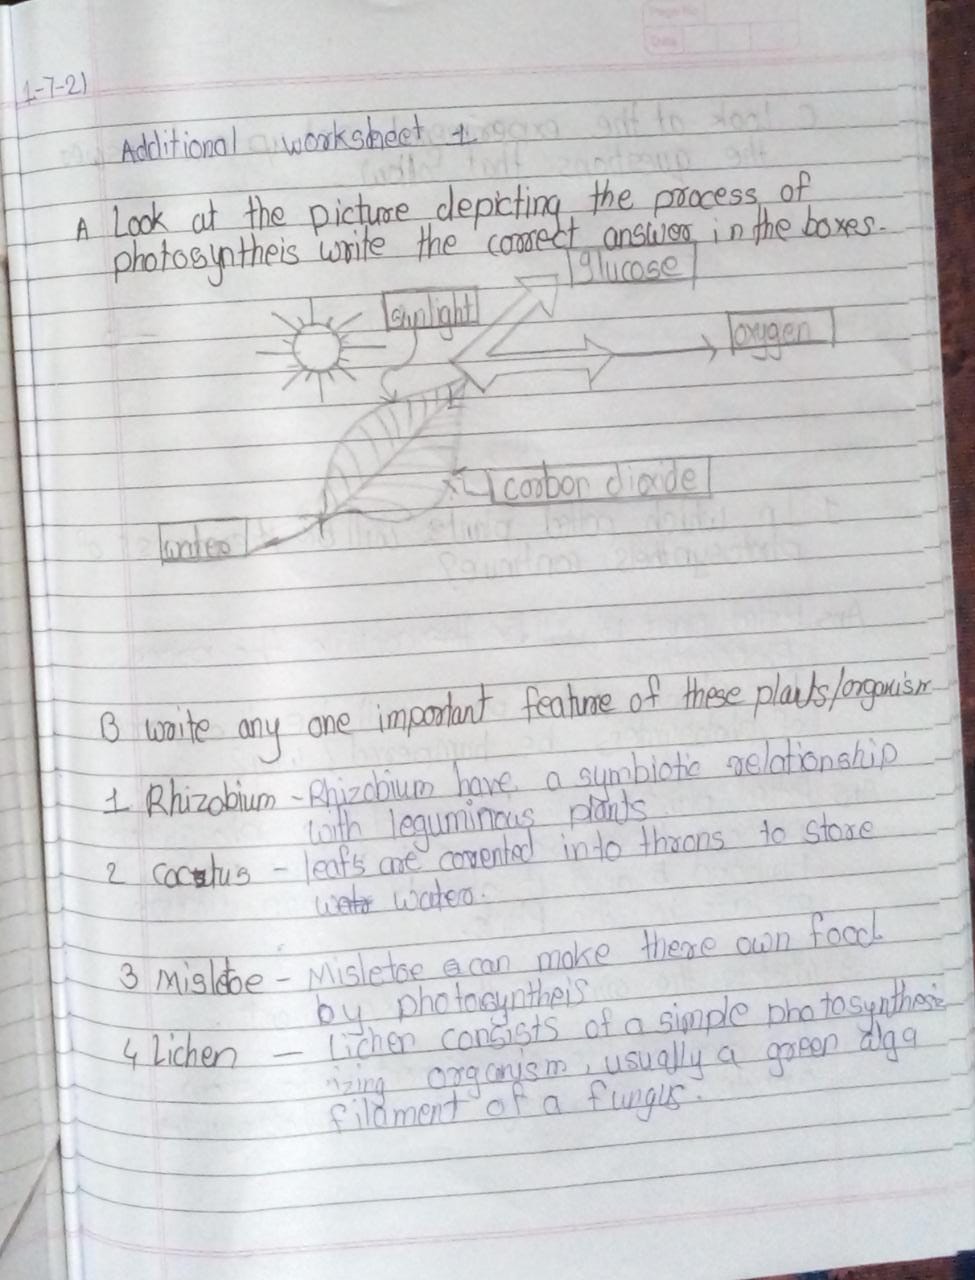 1-7-21
Additional worksheet 1
A Look at the picture depicting the process of
photosyntheis write the correct answer in the boxes.
glucose
sunlight
oxygen
carbon dioxide
water
B write any one important feature of these plants/organism
1 Rhizobium - Rhizobium have a symbiotic relationship
with leguminous plants
2 cactus - leafs are coverted into throns to store
water.
3 Misletoe - Misletoe can make there own food
by photosyntheis
4 Lichen - Lichen consists of a simple photosynthesi
izing organism, usually a green alga
filament of a fungus.